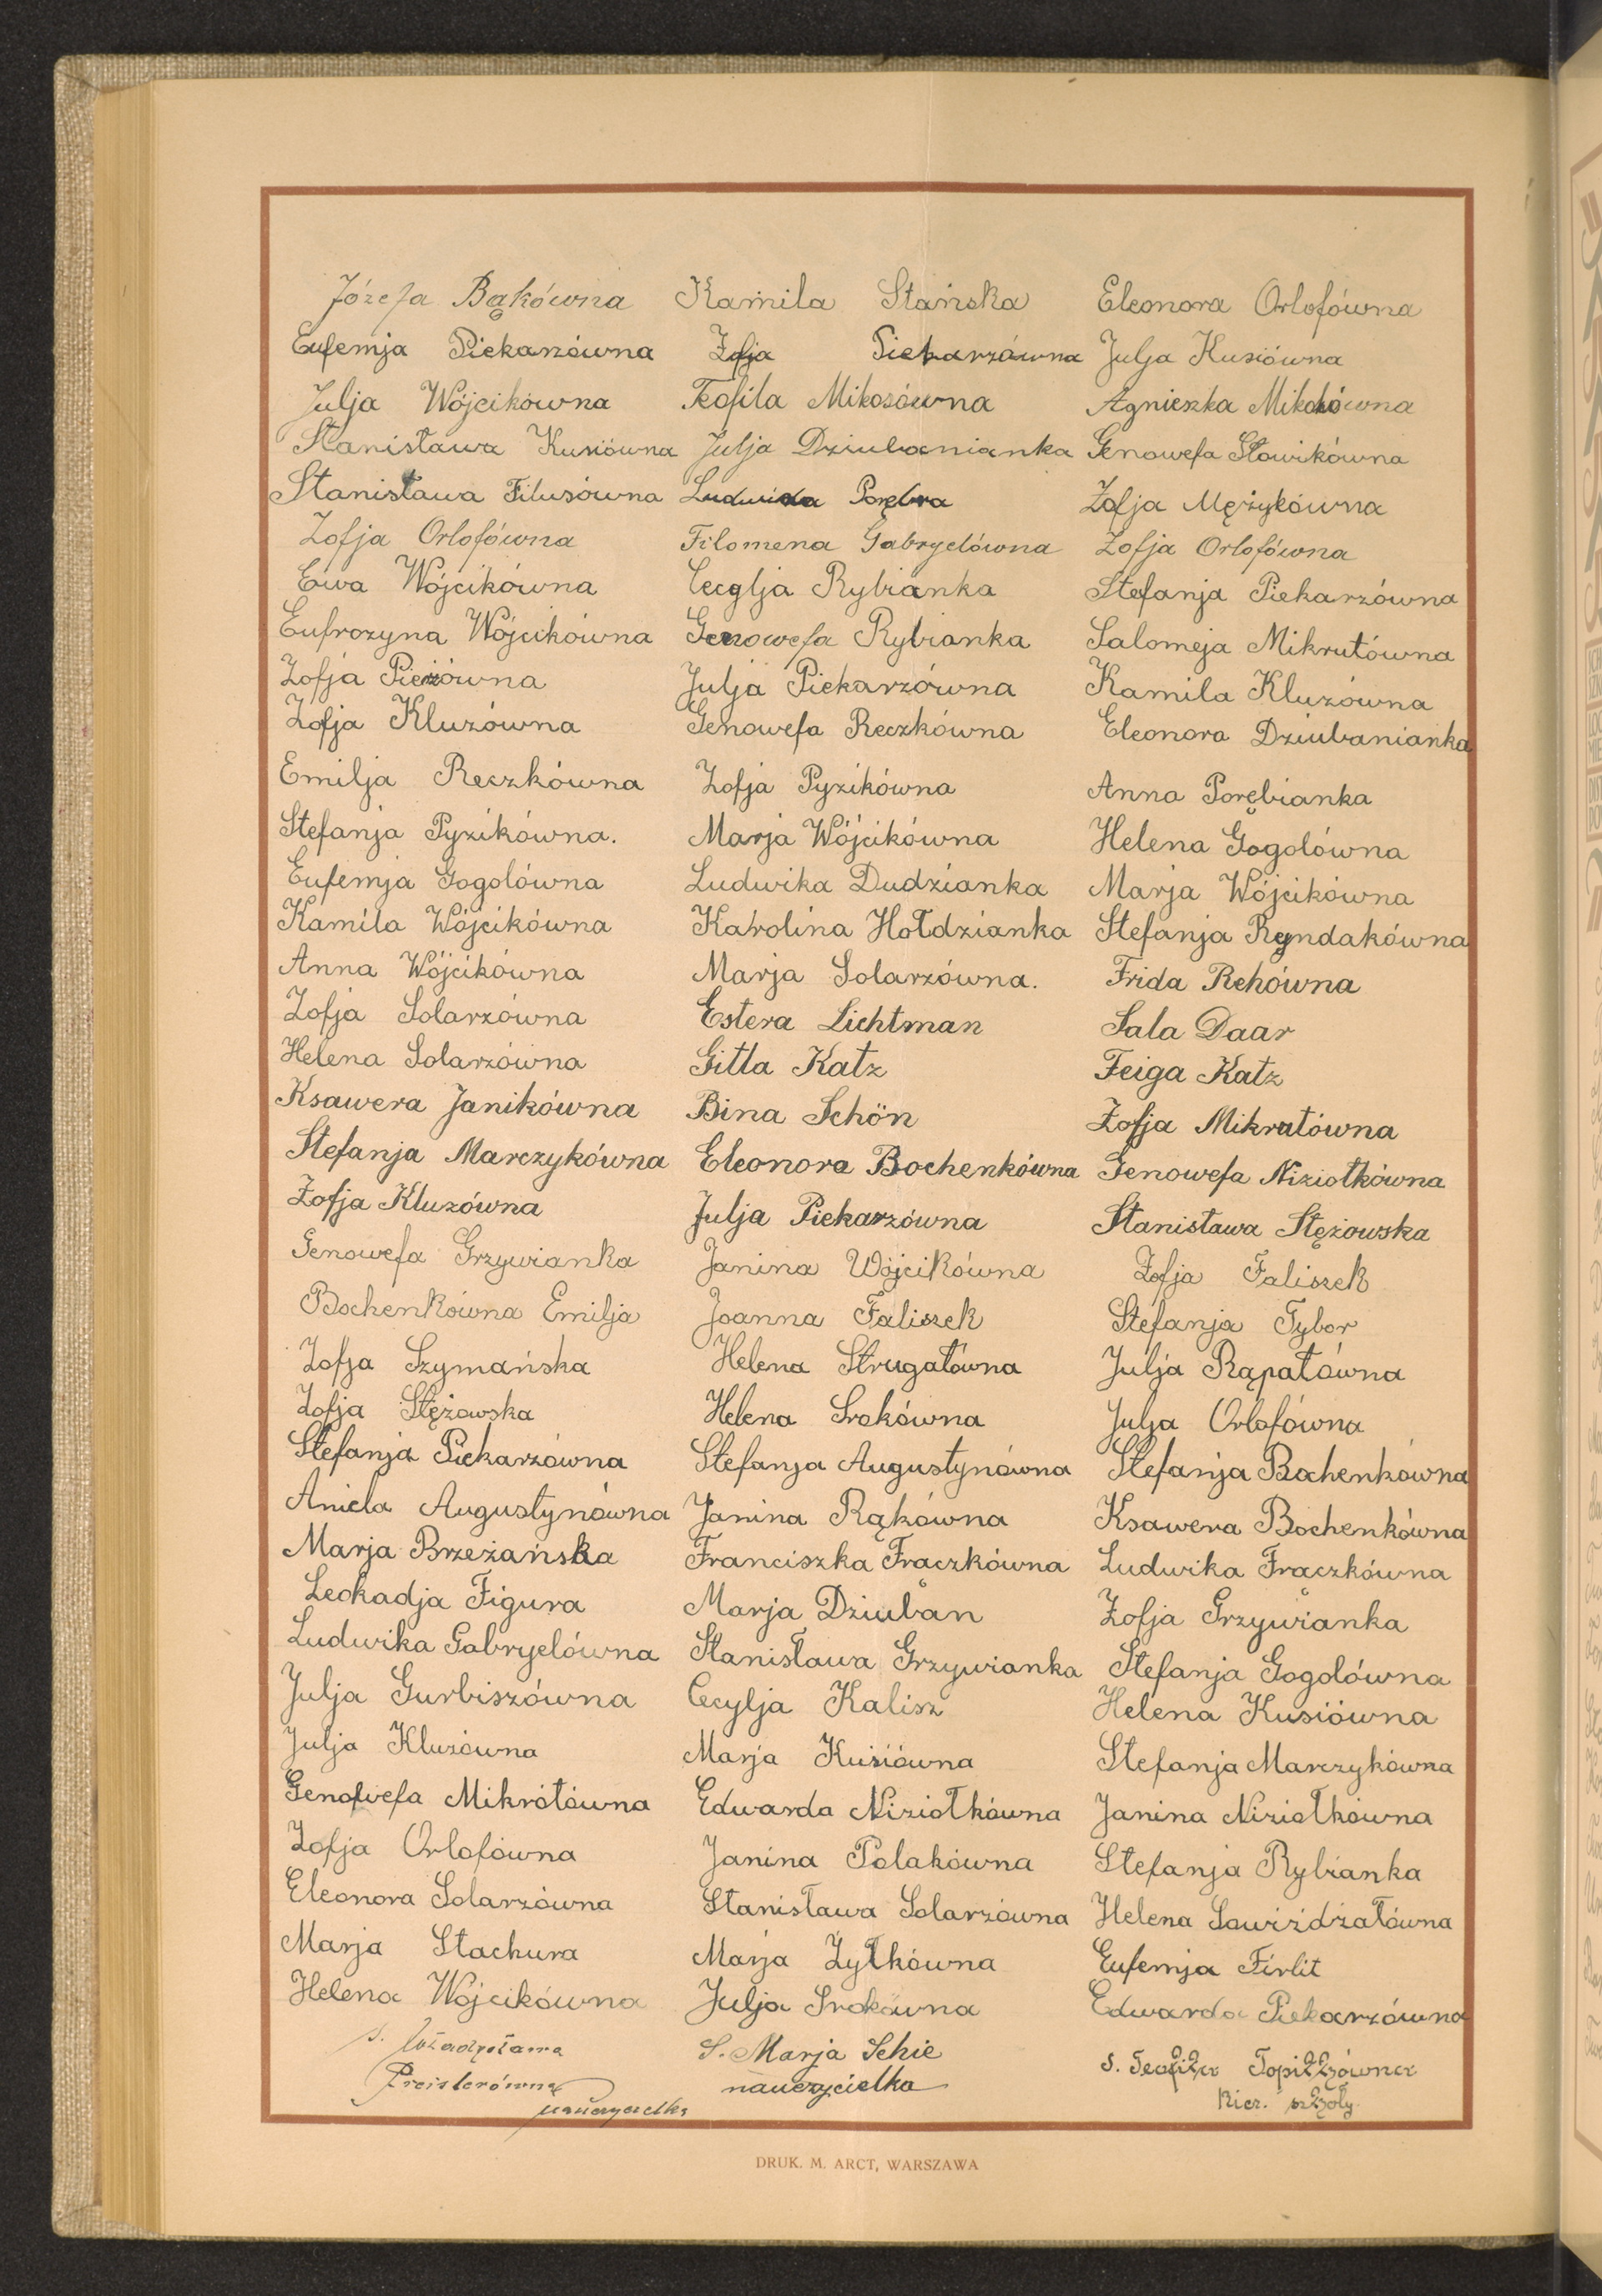 Józefa Bąkówna Kamila Stańska Eleonora Orlofówna
Eufemja Piekarzówna Zofja Piekarzówna Julja Kusiówna
Julja Wójcikówna Teofila Mikosówna Agnieszka
Stanisława Kusiówna Julja Dziubanianka Genowefa Słowikówna
Stanisława Filusówna Ludwika Porębra Zofja Mężykówna
Zofja Orlofówna Filomena Gabryelówna Zofja Orlofówna
Ewa Wójcikówna Cecylja Rybianka Stefanja Piekarzówna
Eufrozyna Wójcikówna Genowefa Rybianka Salomeja Mikrutówna
Zofja Julja Piekarzówna Kamila Kluzówna
Zofja Kluzówna Genowefa Reczkówna Eleonora Dziubanianka
Emilja Reczkówna Zofja Pyzikówna Anna Porębianka
Stefanja Pyzikówna. Marja Wójcikówna Helena Gogolówna
Eufemja Gogolówna Ludwika Dudzianka Marja Wójcikówna
Kamila Wójcikówna Karolina Hołdzianka Stefanja Ryndakówna
Anna Wójcikówna Marja Solarzówna. Frida Rehówna
Zofja Solarzówna Estera Lichtman Sala Daar
Helena Solarzówna Gitla Katz Feiga Katz
Ksawera Janikówna Bina Schön Zofja Mikrutówna
Stefanja Marczykówna Eleonora Bochenkówna Genowefa Niziołkówna
Zofja Kluzówna Julja Piekarzówna Stanisława Stężowska
Genowefa Grzywianka Janina Wójcikówna Zofja Faliszek
Bochenkówna Emilja Joanna Faliszek Stefanja Tybor
Zofja Szymańska Helena Strugałówna Julja Rąpałówna
Zofja Stężowska Helena Srokówna Julja Orlofówna
Stefanja Piekarzówna Stefanja Augustynówna Stefanja Bochenkówna
Aniela Augustynówna Janina Rąkówna Ksawera Bochenkówna
Marja Brzeżańska Franciszka Frączkówna Ludwika Frączkówna
Leokadja Figura Marja Dziuban Zofja Grzywianka
Ludwika Gabryelówna Stanisława Grzywianka Stefanja Gogolówna
Julja Gurbiszówna Cecylja Kalisz Helena Kusiówna
Julja Kluzówna Marja Kusiówna Stefanja Marczykówna
Genofwefa Mikrótówna Edwarda Niziołkówna Janina Niziołkówna
Zofja Orlofówna Janina Polakówna Stefanja Rybianka
Eleonora Solarzówna Stanisława Solarzówna Helena Sowiżdżałówna
Marja Stachura Marja Żyłkówna Eufemja Firlit
Helena Wójcikówna Julja Srokówna Edwarda Piekarzówna
S. S. Marja Schie S. Teofila
Preislerówna nauczycielka Kier. szkoły.
nauczycielka
DRUK. M. ARCT, WARSZAWA